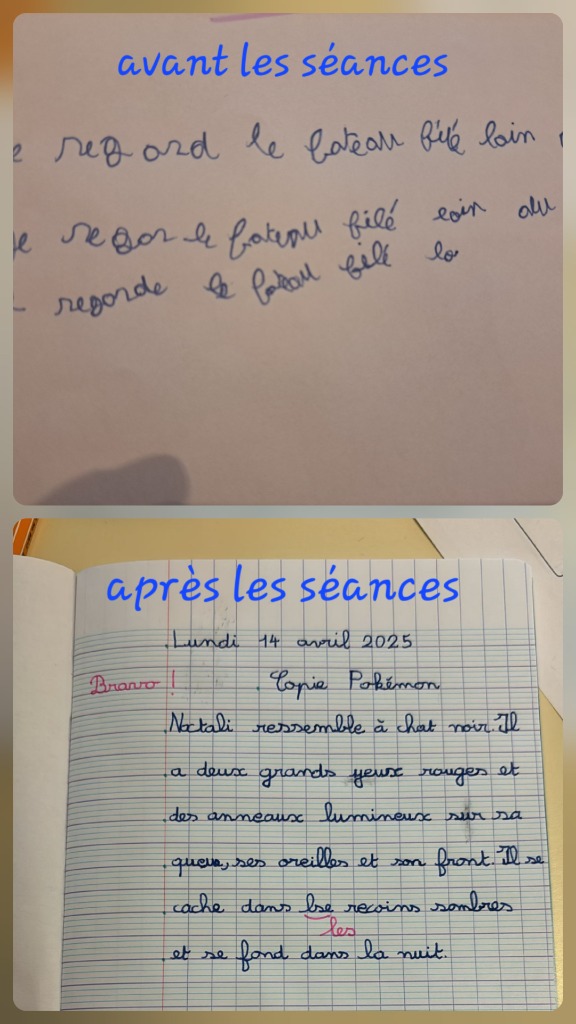 avant les séances
regard le bateau filé loin
regor le bateau filé loin du
regorde le bateau filé lo
après les séances
Lundi 14 avril 2025
Bravo ! Copie Pokémon
Noctali ressemble à chat noir. Il
a deux grands yeux rouges et
des anneaux lumineux sur sa
queue, ses oreilles et son front. Il se
cache dans lse recoins sombres
les
et se fond dans la nuit.